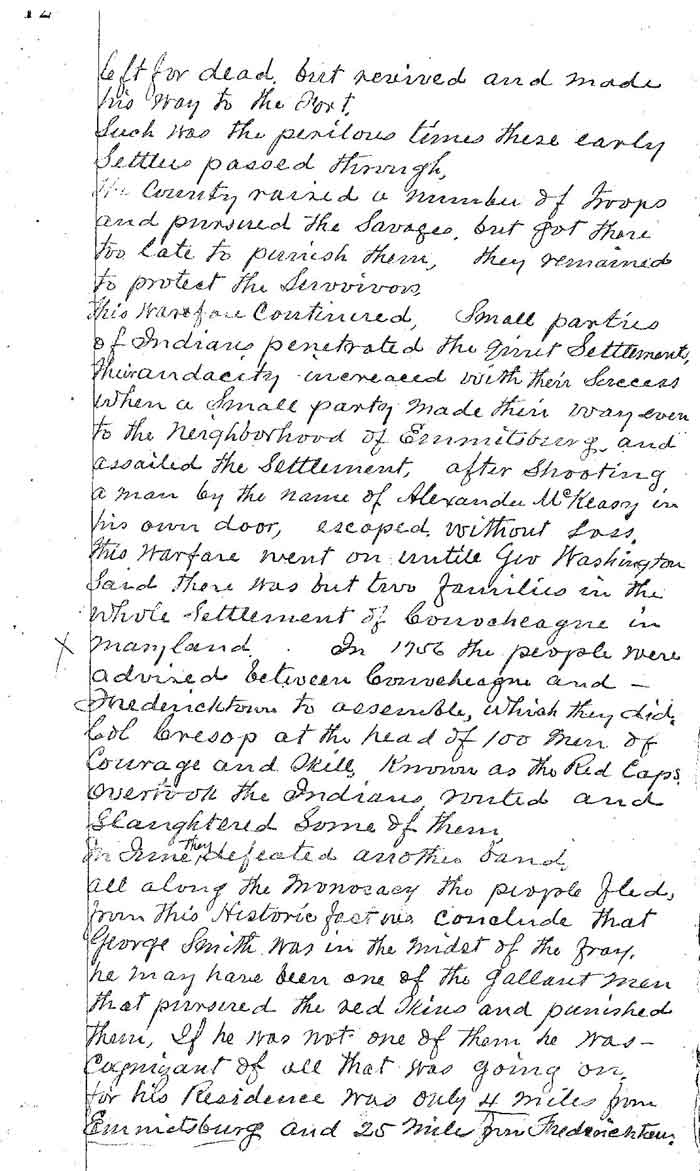 12
left for dead, but revived and made
his way to the Fort.
Such was the perilous times these early
Settlers passed through,
The County raised a number of troops
and pursued the Savages, but got there
too late to punish them, they remained
to protect the Survivors,
this warefare Continued, Small parties
of Indians penetrated the Settlements,
their audacity increaced with their Success
when a Small party made their way even
to the Neighborhood of Emmitsburg, and
assailed the Settlement, after Shooting
a man by the name of Alexander McKeasy in
his own door, escaped without Loss.
this warfare went on untile Geo Washington
Said there was but two families in the
whole Settlement of Conocheague in
X Maryland. In 1756 the people were
advised between Conocheague and –
Fredericktown to assemble, which they did.
Col Cresop at the head of 100 Men of
Courage and Skill, Known as the Red Caps,
overtook the Indians, routed and
Slaughtered Some of them,
in June they defeated another band,
all along the Monosacy the people fled,
from this Historic fact we conclude that
George Smith was in the midst of the fray.
he may have been one of the gallant men
that pursured the red Skins and punished
them, If he was not one of them he was –
Cognizant of all that was going on,
for his Residence was only 4 miles from
Emmitsburg and 25 mile from Fredericktown.